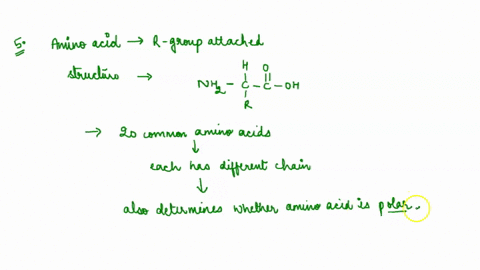 5. Amino acid → R-group attached
structure → NH2 - C - C - OH
H O
R
→ 20 common amino acids
↓
each has different chain
↓
also determines whether amino acid is polar.